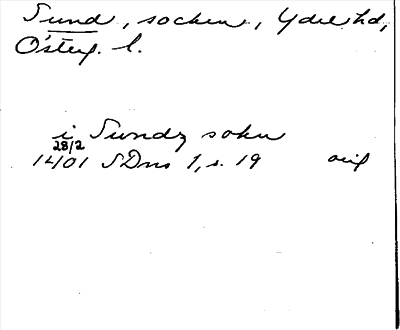 Sund, socken, Ydre hd,
Österg. l.
i Sundz sokn
28/2
1401 SDns 1, s. 19 orig